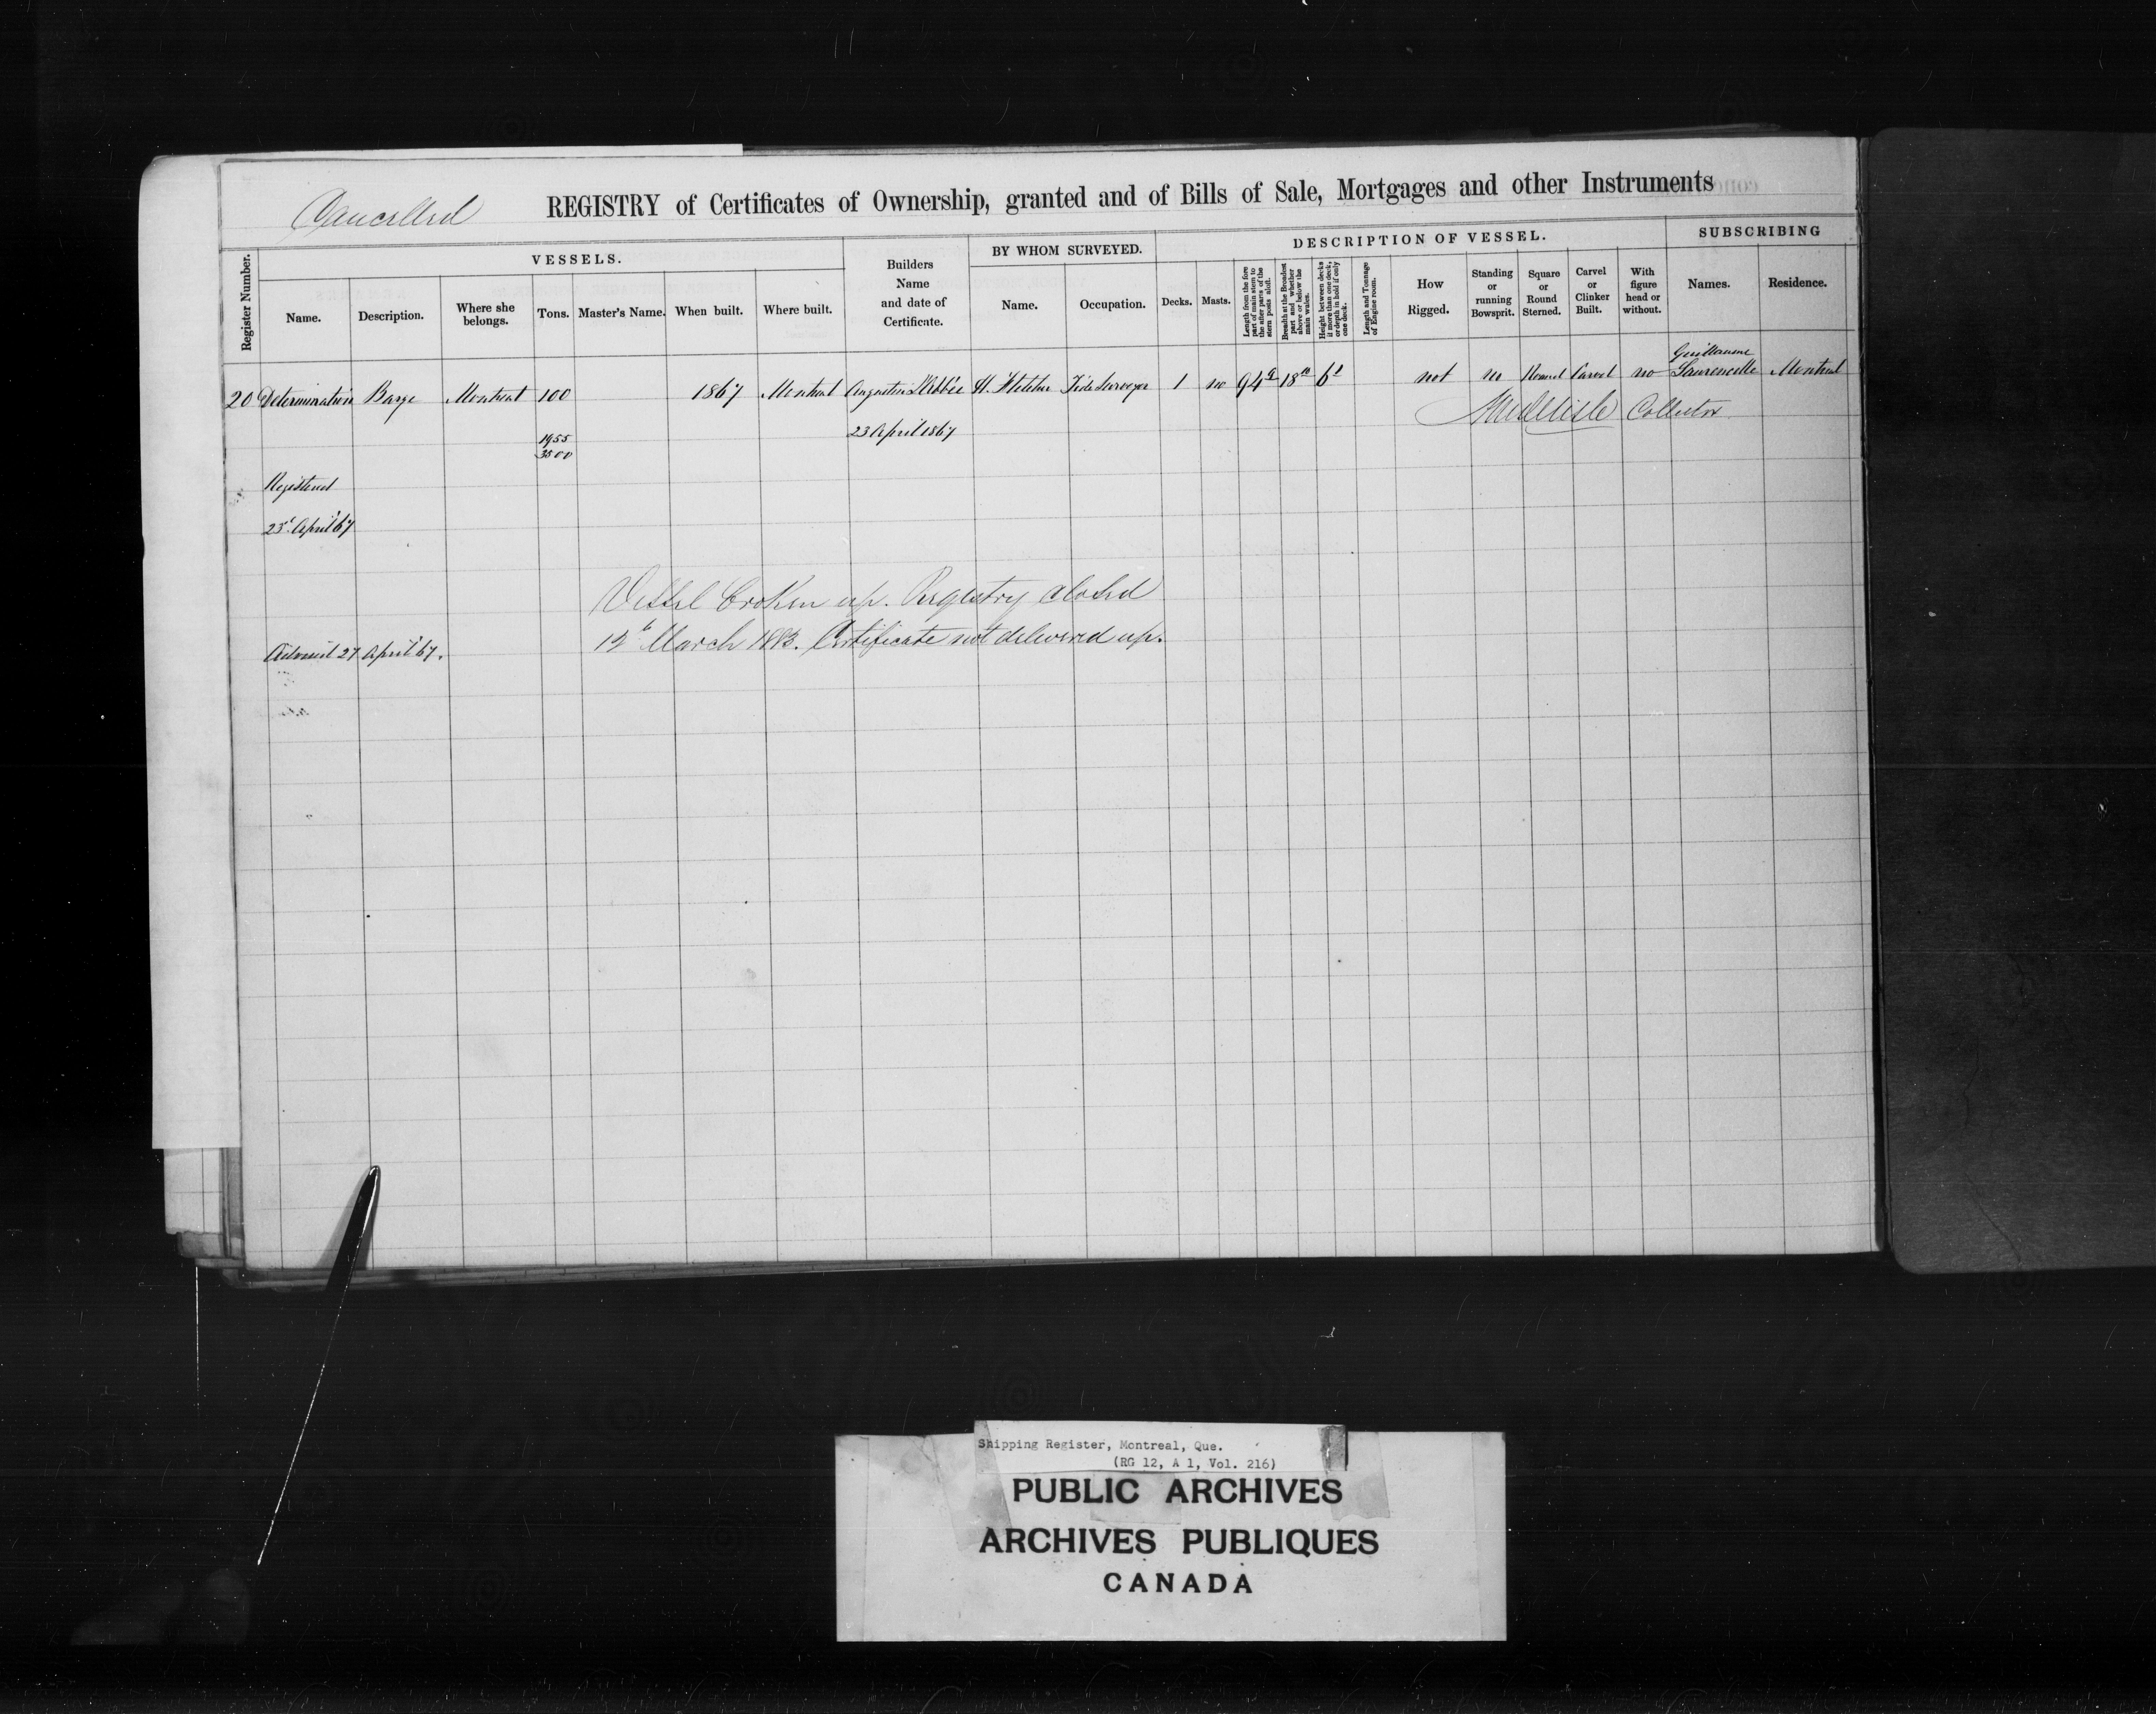 Cancelled
REGISTRY of Certificates of Ownership, granted and of Bills of Sale, Mortgages and other Instruments
Register Number.
VESSELS.
Name.
Description.
Where she belongs.
Tons.
Master's Name.
When built.
Where built.
Builders
Name
and date of
Certificate.
BY WHOM SURVEYED.
Name.
Occupation.
DESCRIPTION OF VESSEL.
Decks.
Masts.
Length from the fore
part of main stem to
the after parts of the
stern posts aloft.
Breadth at the Broadest
part and whether
above or below the
main wales.
Height between decks
if more than one deck,
or depth in hold if only
one deck.
Length and Tonnage
of Engine room.
How
Rigged.
Standing
or
running
Bowsprit.
Square
or
Round
Sterned.
Carvel
or
Clinker
Built.
With
figure
head or
without.
SUBSCRIBING
Names.
Residence.
Guillaume
20 Determination Barge Montreal 100 1867 Montreal Augustin L'Abbée H. Fletcher Tide Surveyor 1 no 94 18 6 not no Round Carvel no Laurencelle Montreal
Collector
23 April 1867
1955
3500
Registered
23d April '67
Vessel broken up. Registry closed
12th March 1883. Certificate not delivered up.
27 April '67.
Shipping Register, Montreal, Que.
(RG 12, A 1, Vol. 216)
PUBLIC ARCHIVES
ARCHIVES PUBLIQUES
CANADA